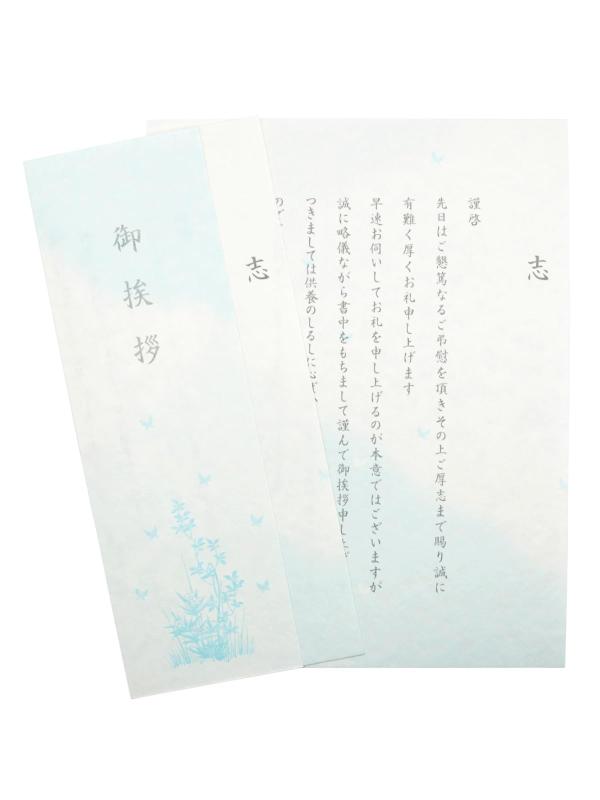 御挨拶
志
志
謹啓
先日はご懇篤なるご弔慰を頂きその上ご厚志まで賜り誠に
有難く厚くお礼申し上げます
早速お伺いしてお礼を申し上げるのが本意ではございますが
誠に略儀ながら書中をもちまして謹んで御挨拶申し上げ
つきましては供養のしるしに心ば